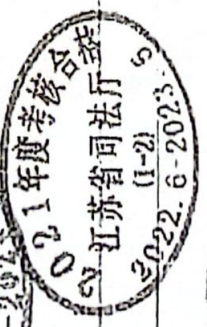 2021年度考核合格
江苏省司法厅
(1-2)
2022.6-2023.5